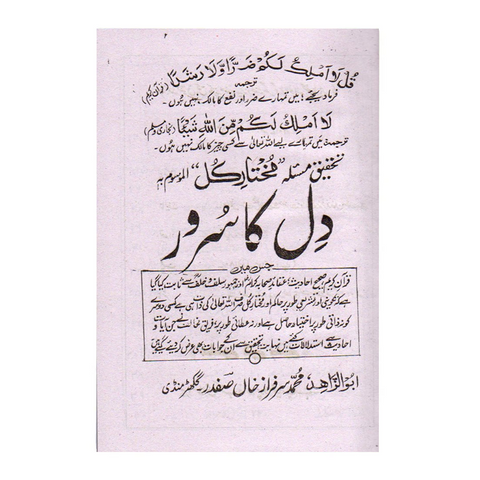 ۲
قُل لَّا اَمْلِكُ لَكُمْ ضَرًّا وَّلَا رَشَدًا (قرآن کریم)
ترجمہ
فرما دیجئے! میں تمہارے ضرر اور نفع کا مالک نہیں ہوں۔
لَا اَمْلِكُ لَكُمْ مِّنَ اللّٰهِ شَيْئًا (بخاری و مسلم)
ترجمہ: میں تمہارے لیے اللہ تعالیٰ سے کسی چیز کا مالک نہیں ہوں۔
تحقیق مسئلہ "مُختارِ کُل" الموسوم بہ
دِل کا سُرور
جس میں
قرآن کریم، صحیح احادیث، عقائد صحابہ کرامؓ اور جمہور سلف و خلف سے ثابت کیا گیا
ہے کہ تکوینی اور تشریعی طور پر حاکم اور مختارِ کُل صرف اللہ تعالیٰ کی ذات ہی ہے کسی دوسرے
کو نہ ذاتی طور پر اختیار حاصل ہے اور نہ عطائی طور پر، فریقِ مخالف نے جن آیات و
احادیث سے استدلالات کئے ہیں نہایت تحقیق سے اُن کے جوابات بھی عرض کر دیئے گئے
ابو الزاہد محمد سرفراز خاں صفدر۔ گکھڑ منڈی